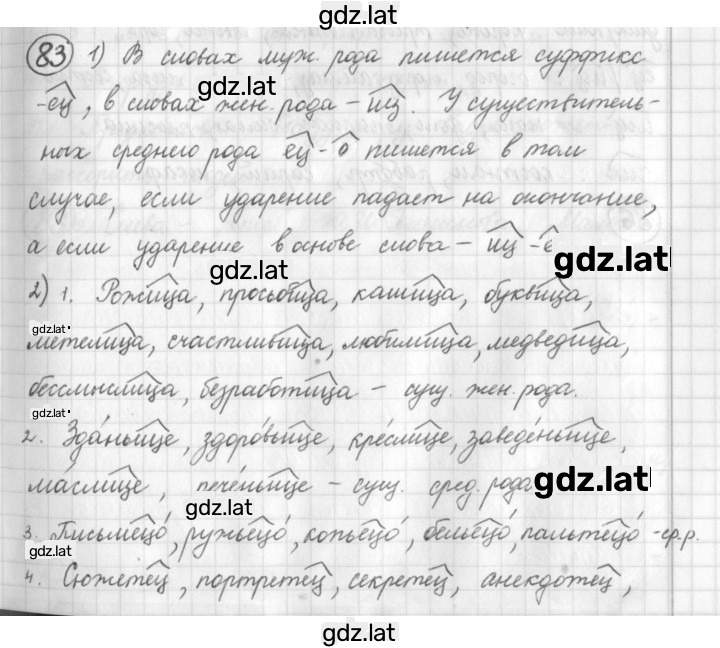 gdz.lat
83 1) В словах муж. рода пишется суффикс
gdz.lat
-ец, в словах жен. рода - иц. У существитель-
ных среднего рода ец-о пишется в том
случае, если ударение падает на окончание,
а если ударение в основе слова - иц -е
gdz.lat
gdz.lat
2) 1. Рожица, просьбица, кашица, буквица,
gdz.lat
метелица, счастливица, любимица, медведица,
бессмыслица, безработица - сущ. жен. рода.
gdz.lat
2. Зда́ньице, здоро́вьице, кре́слице, заведе́ньице,
ма́слице, пече́ньице - сущ. сред. рода
gdz.lat
3. Письмецо́, ружьецо́, копьецо́, бельецо́, пальтецо́ - ср. р.
gdz.lat
4. Сюжетец, портретец, секретец, анекдотец,
gdz.lat